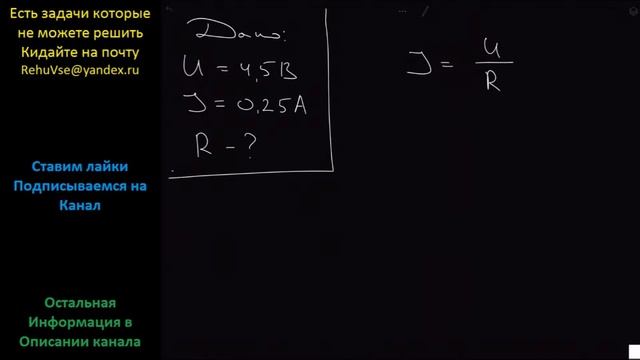 Есть задачи которые
не можете решить
Кидайте на почту
RehuVse@yandex.ru
Ставим лайки
Подписываемся на
Канал
Остальная
Информация в
Описании канала
Дано:
U = 4,5В
I = 0,25А
R - ?
I = U/R